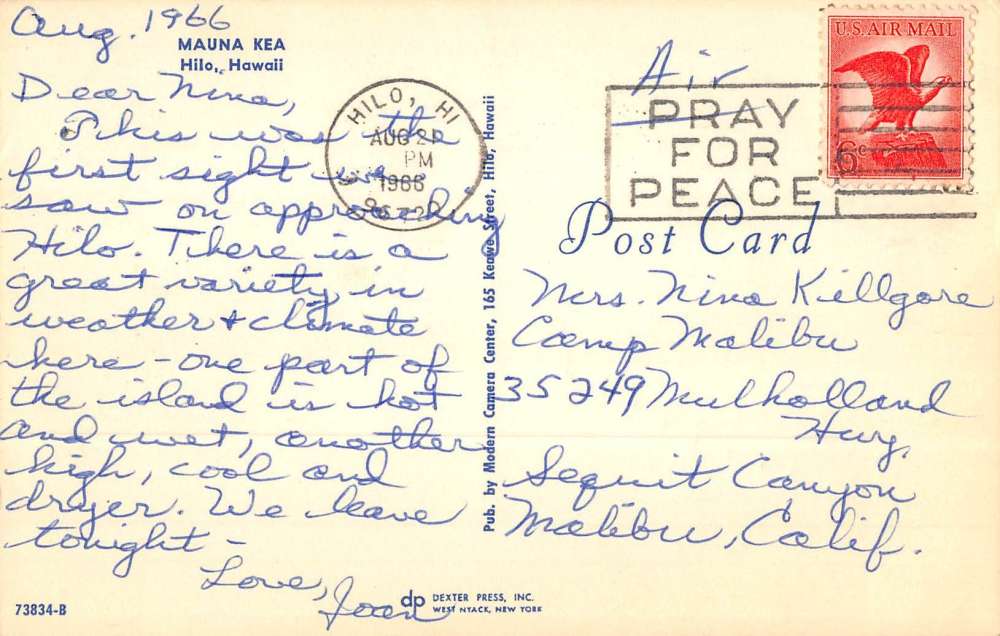 Aug. 1966
MAUNA KEA
Hilo, Hawaii
Dear Nina,
This was the
first sight we
saw on approaching
Hilo. There is a
great variety in
weather + climate
here - one part of
the island is hot
and wet, another
high, cool and
dryer. We leave
tonight -
Love,
Joan
73834-B
dp DEXTER PRESS, INC.
WEST NYACK, NEW YORK
Pub. by Modern Camera Center, 165 Keawe Street, Hilo, Hawaii
HILO, HI
AUG 2
PM
1966
96720
Air
PRAY
FOR
PEACE
U.S. AIR MAIL
6c
Post Card
Mrs. Nina Killgore
Camp Malibu
35249 Mulholland
Hwy.
Sequit Canyon
Malibu, Calif.